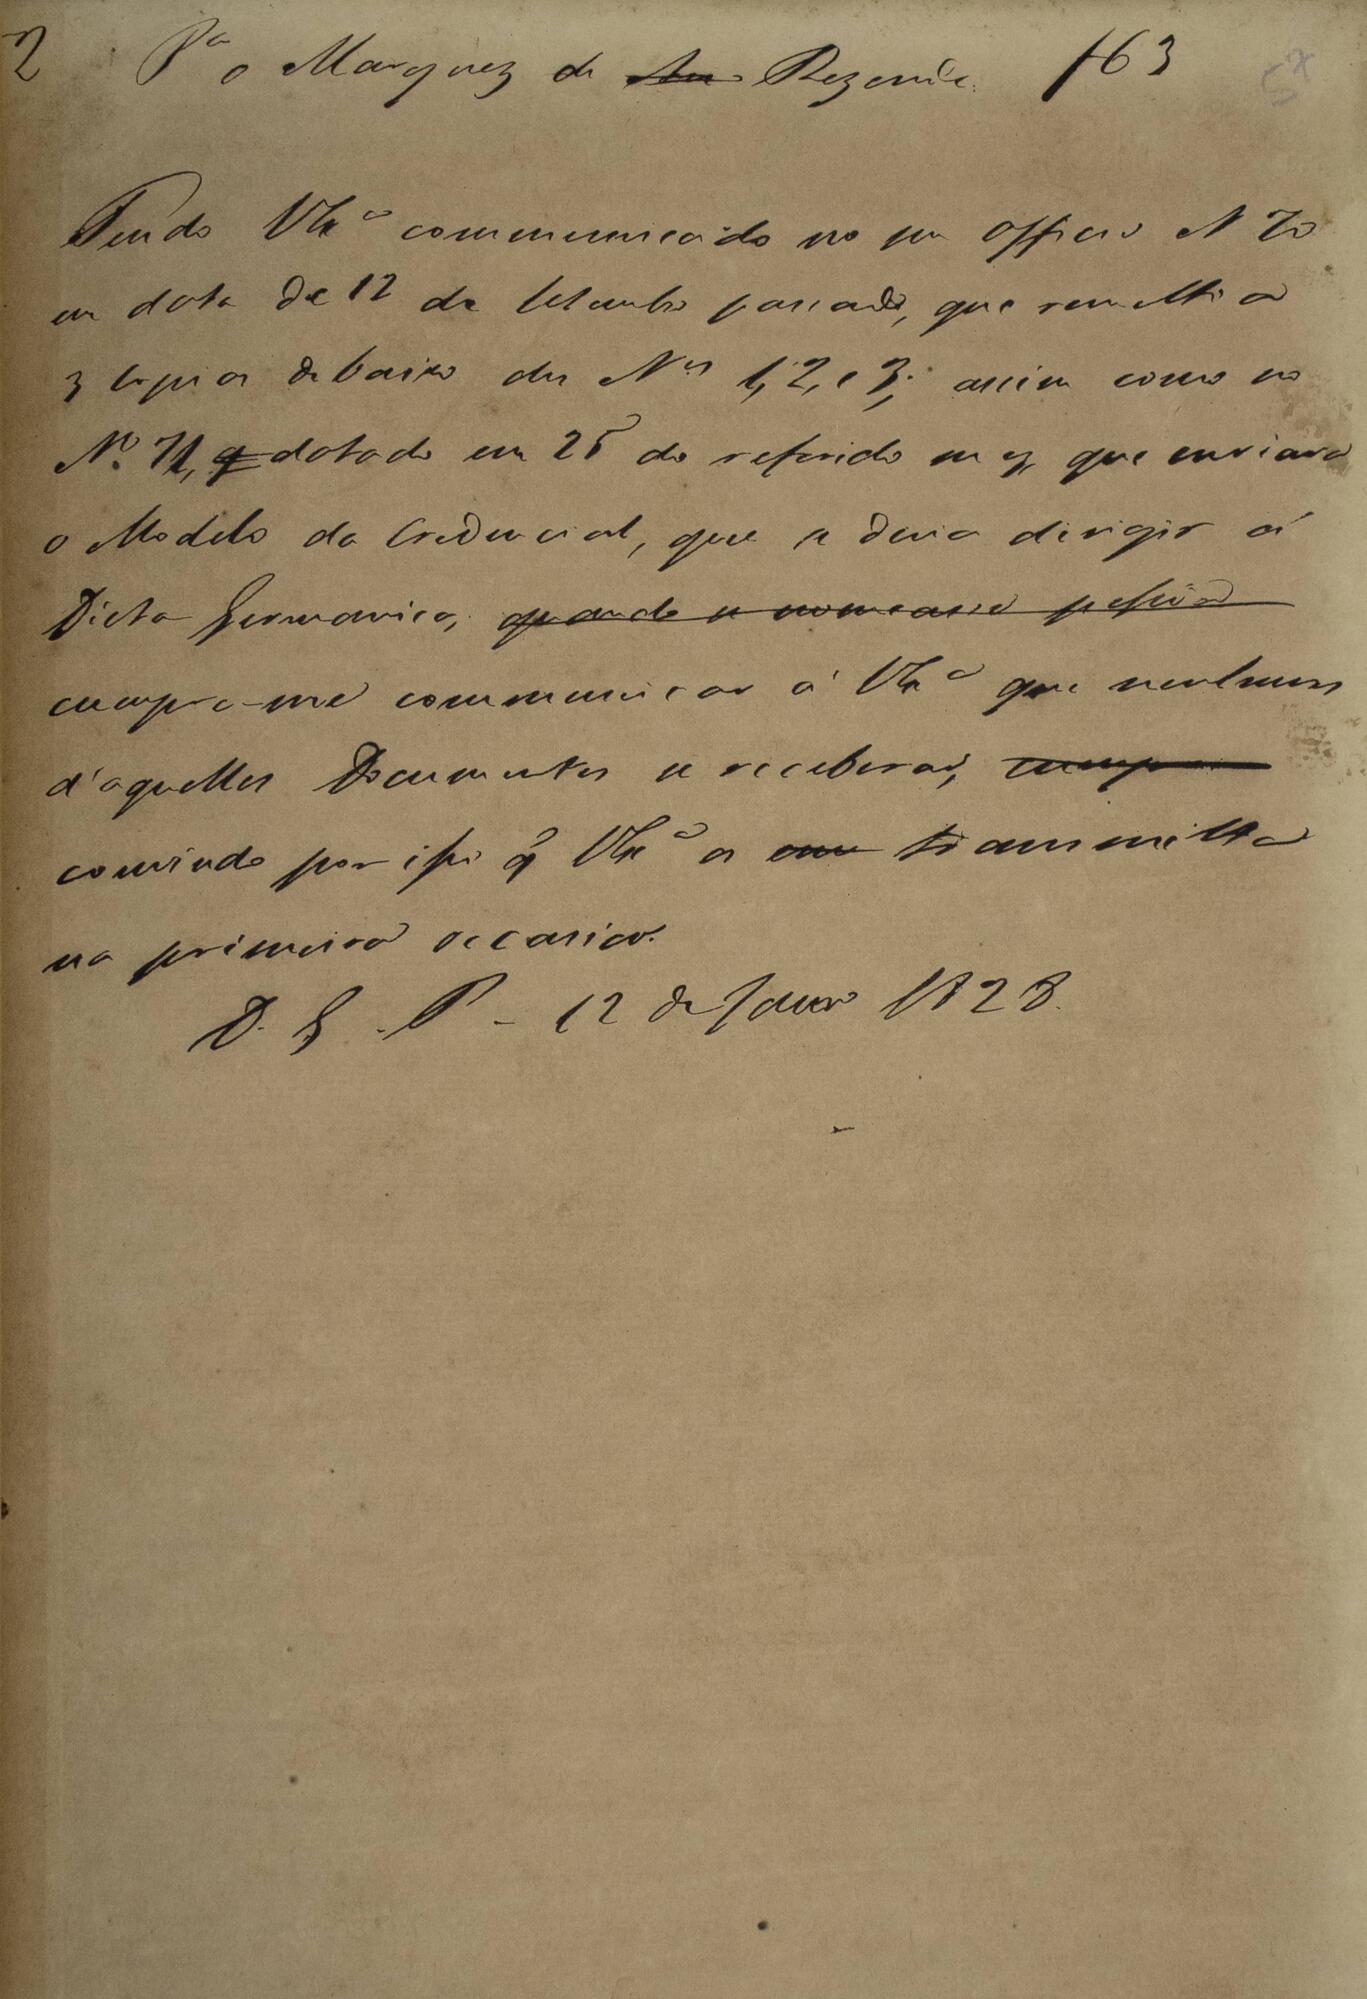 2 Pª o Marquez de Rezende. 163 57
Tendo VExª communicado no seu officio N 70
em data de 12 de Setembro passado, que remettia
3 Copias debaixo dos Nos 1, 2, e 3; assim como no
Nº 71, q datado em 25 do referido mez, que enviava
o Modelo da Credencial, que se devia dirigir á
Dieta Germanica, quando se nomeasse pessoa
cumpre-me communicar á VExª que nenhum
d'aquelles Documentos se receberaõ, cumpre
convindo por isso q̃ VExª os transmitta
na primeira occasiaõ.
D. G. P. - 12 de Janro 1828.